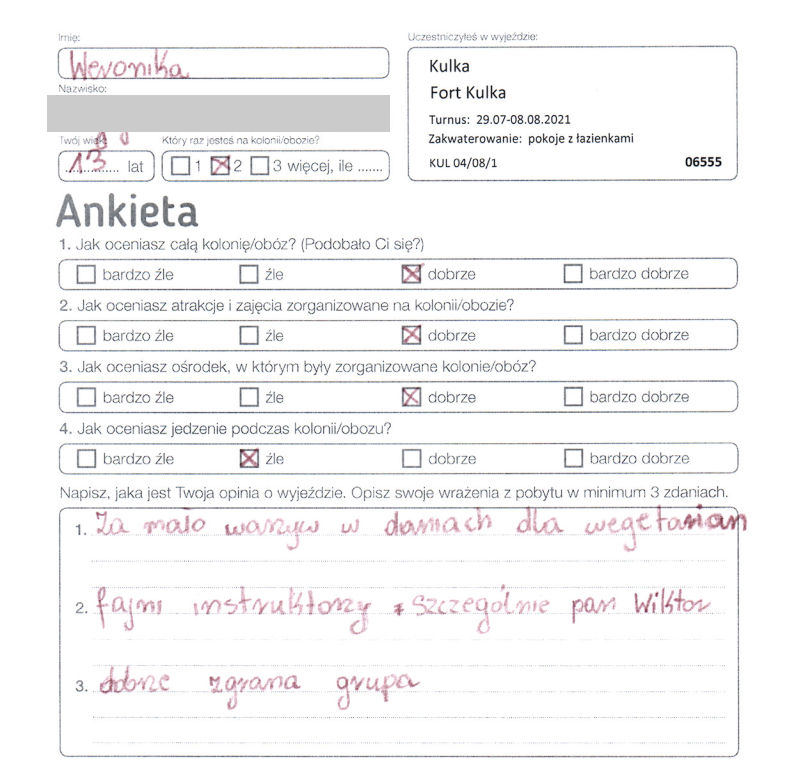 Imię:
Weronika
Nazwisko:
Twój wiek:
13 lat
Który raz jesteś na kolonii/obozie?
1 2 3 więcej, ile .......
Uczestniczyłeś w wyjeździe:
Kulka
Fort Kulka
Turnus: 29.07-08.08.2021
Zakwaterowanie: pokoje z łazienkami
KUL 04/08/1 06555
Ankieta
1. Jak oceniasz całą kolonię/obóz? (Podobało Ci się?)
bardzo źle źle dobrze bardzo dobrze
2. Jak oceniasz atrakcje i zajęcia zorganizowane na kolonii/obozie?
bardzo źle źle dobrze bardzo dobrze
3. Jak oceniasz ośrodek, w którym były zorganizowane kolonie/obóz?
bardzo źle źle dobrze bardzo dobrze
4. Jak oceniasz jedzenie podczas kolonii/obozu?
bardzo źle źle dobrze bardzo dobrze
Napisz, jaka jest Twoja opinia o wyjeździe. Opisz swoje wrażenia z pobytu w minimum 3 zdaniach.
1. Za mało warzyw w daniach dla wegetarian
2. fajni instruktorzy szczególnie pan Wiktor
3. dobrze zgrana grupa